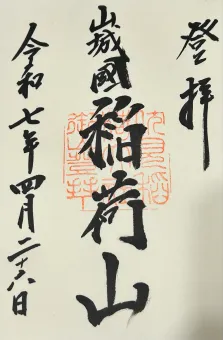 登拝
山城國
稲荷山
令和七年四月二十六日